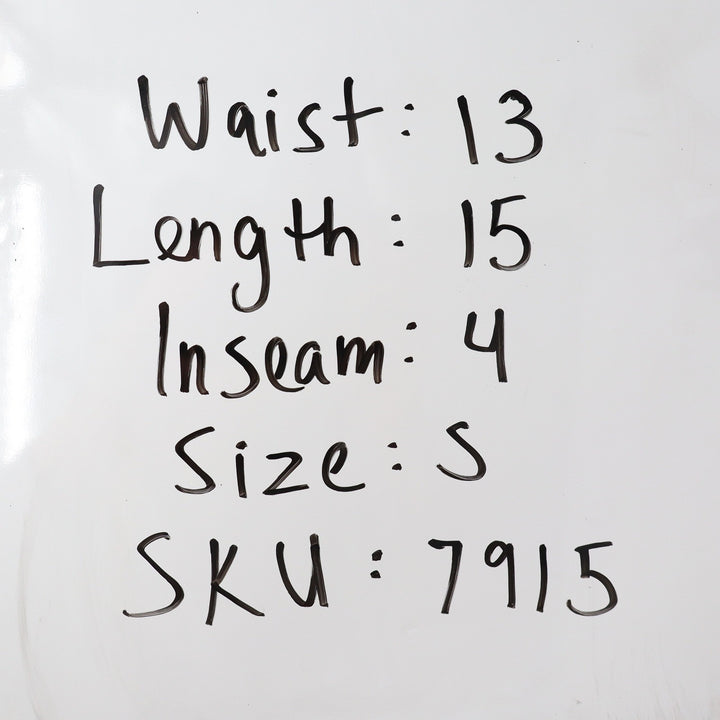 Waist: 13
Length: 15
Inseam: 4
Size: S
SKU: 7915